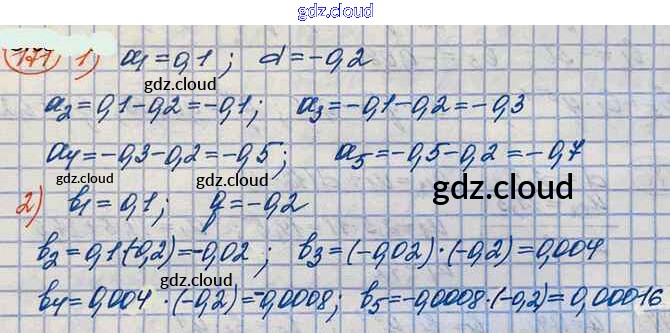 gdz.cloud
171 1) a₁ = 0,1; d = -0,2
gdz.cloud
a₂ = 0,1 - 0,2 = -0,1; a₃ = -0,1 - 0,2 = -0,3
gdz.cloud
a₄ = -0,3 - 0,2 = -0,5; a₅ = -0,5 - 0,2 = -0,7
gdz.cloud
gdz.cloud
gdz.cloud
2) b₁ = 0,1; q = -0,2
b₂ = 0,1·(-0,2) = -0,02; b₃ = (-0,02)·(-0,2) = 0,004
gdz.cloud
b₄ = 0,004·(-0,2) = -0,0008; b₅ = -0,0008·(-0,2) = 0,00016